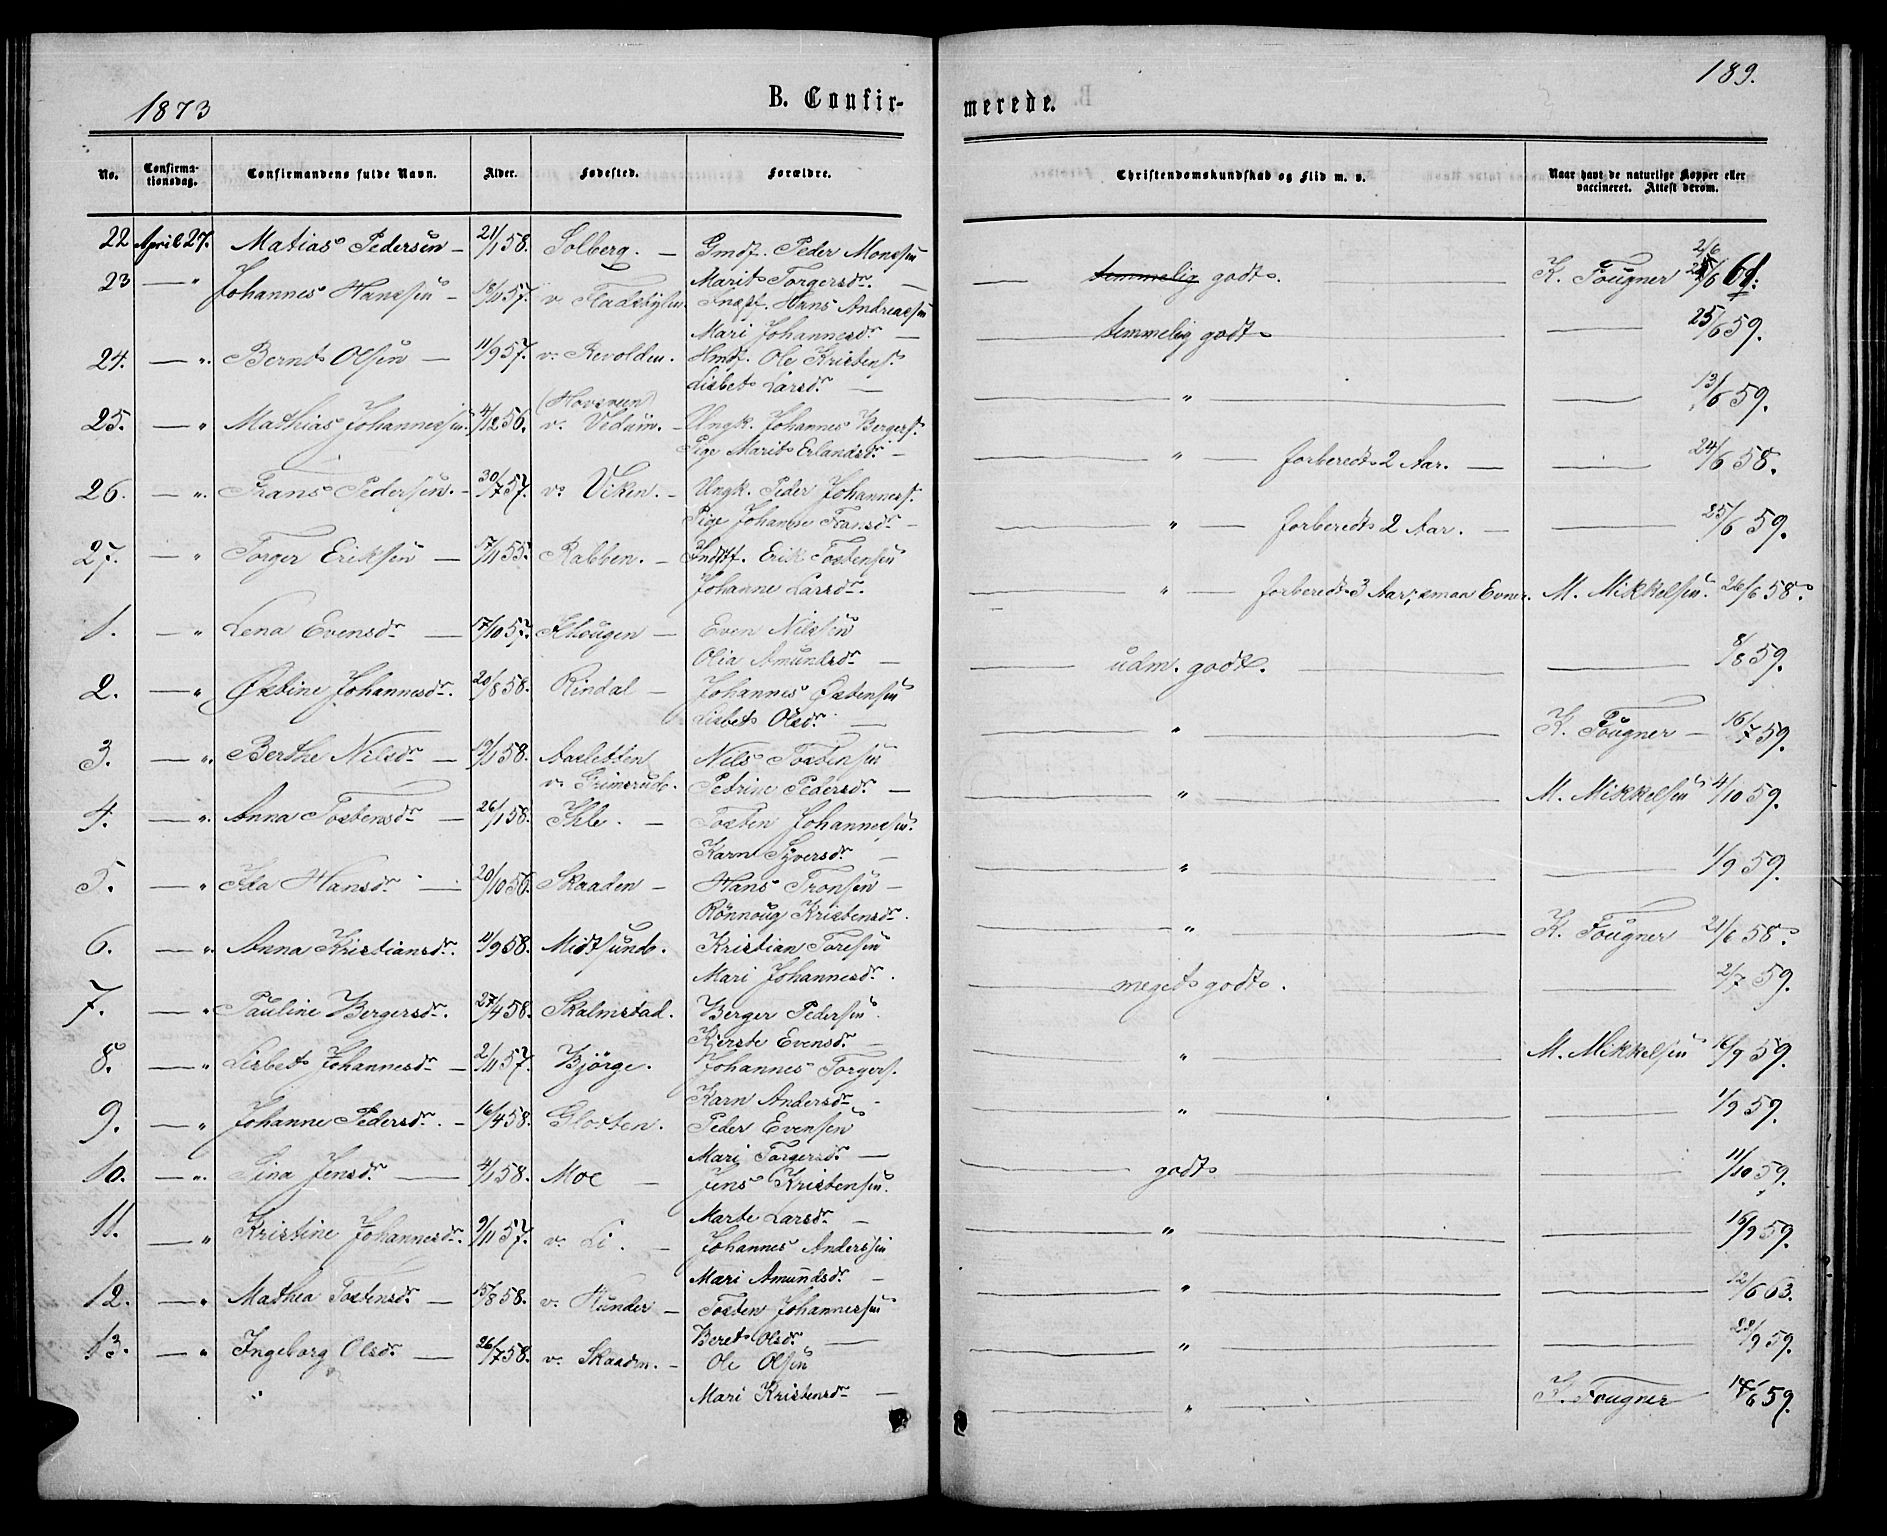 1873
B. Confir-
merede.
189.
No.
Confirma-
tionsdag.
Confirmandens fulde Navn.
Alder.
Fødested.
Forældre.
Christendomskundskab og Flid m. v.
Naar havt de naturlige Kopper eller
vaccineret. Attest derom.
22 April 27. Matias Pedersen - 21/1 58. Solberg. - Gmdf. Peder Monssen
Marit Torgersdr. - temmelig godt. K. Fougner 61.
23 — " Johannes Hanssen - 57. v. Fladsbylien Hans Andreassen
Mari Johannesdr. - temmelig godt — 25/6 59.
24. — ". Bernt Olsen — 11/9 57. v. Revolden. Hmdf. Ole Kristens.
Lisbet Larsdr. — " — 13/6 59.
25. — " Mathias Johannessen. 4/12 56. (Hovsveen) v. Vedum. - Ungk. Johannes Bergers.
Pige Marit Erlandsdr. - " — forberedt 2 Aar. — 24/6 58.
26. — ". Frans Pedersen. - 30/7 57. v. Viken. - Ungk. Peder Johannes.
Pige Johanne Fransdr. - " — forberedt 2 Aar. — 25/6 59.
27. — " Torger Eriksen — 17/11 55. Rabben. - Indstf. Erik Tostensen
Johanne Larsdr. " — forberedt 3 Aar, smaa Evner. M. Mikkelsen. 26/6 58.
1. — " Lena Evensdr. — 17/10 57. Skougen — Even Nilssen
Olia Amundsdr. — udm. godt. — 8/8 59.
2. — " Østine Johannesdr. 20/8 58. Rindal — Johannes Østensen
Lisbet Olsdr. — " — K. Fougner — 16/7 59.
3. — ". Berthe Nilsdr. — 58. Aasletten Nils Tostensen
v. Grimsrud. Petrine Pedersdr. — " — M. Mikkelsen 4/10 59.
4. — ". Anna Tostensdr. — 26/1 58. Ihle. — Tosten Johannessen.
Karn Syversdr. — " — 1/9 59.
5. — " Ida Hansdr. — 20/10 56. Skaaden — Hans Tronsen —
Rönnoug Kristensdr. " — K. Fougner 21/6 58.
6. — " Anna Kristiansdr. 11/9 58. Midtsund. Kristian Toresen
Mari Johannesdr. meget godt. — 2/7 59.
7. — " Pauline Bergersdr. 27/4 58. Skalmstad. Berger Pedersen
Kjerste Evensdr. — " — M. Mikkelsen 16/9 59.
8. — " Lisbet Johannesdr. — 2/11 57. Bjørge. Johannes Torgers.
Karn Andersdr. - " — 1/9 59.
9. — " Johanne Pedersdr. - 16/4 58. Glosten. Peder Evensen
Mari Torgersdr. — godt — 11/10 59.
10. — ". Sina Jensdr. — 4/1 58. Moe — Jens Kristensen.
Marte Larsdr. — " — 16/9 59.
11. — " Kristine Johannesdr. 9/11 57. v. Li. — Johannes Anderssen
Mari Amundsdr. — " — 12/6 63.
12. — " Mathea Tostensdr. — 15/8 58. v. Hunder — Tosten Johannessen
Beret Olsdr. — " — 59.
13. — " Ingeborg Olsdr. — 26/7 58. v. Skaaden. — Ole Olsen
Mari Kristensdr. — " — K. Fougner 59.